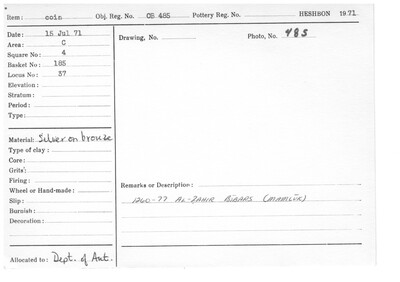 Item: coin Obj. Reg. No. OB 485 Pottery Reg. No. HESHBON 1971
Date: 15 Jul 71
Area: C
Square No: 4
Basket No: 165
Locus No: 37
Elevation:
Stratum:
Period:
Type:
Drawing, No. Photo, No. 485
Material: Silver on bronze
Type of clay:
Core:
Grits:
Firing:
Wheel or Hand-made:
Slip:
Burnish:
Decoration:
Remarks or Description:
1260-77 AL-ZAHIR BIBARS (MAMLUK)
Allocated to: Dept. of Ant.